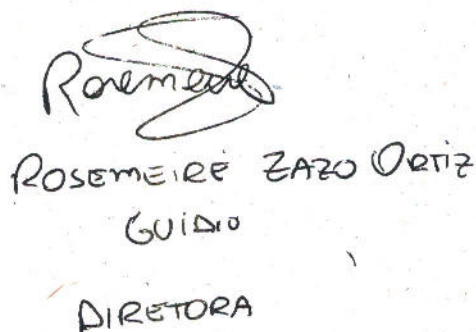 Rosemeire
ROSEMEIRE ZAZO ORTIZ
GUIDIO
DIRETORA